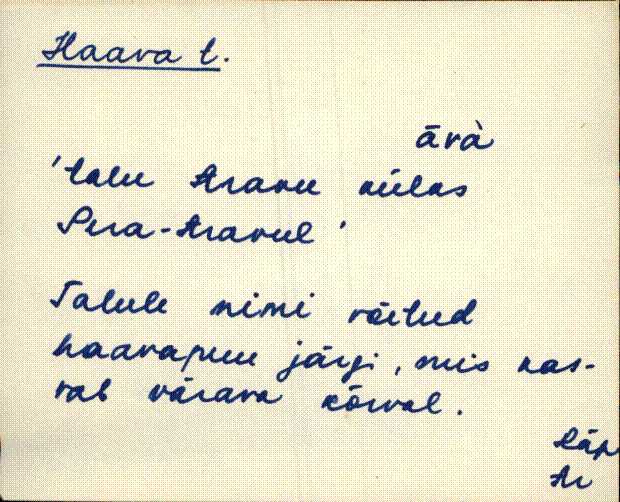 Haava t.
āvà
'talu Aravu külas
Suur-Aravul'
Talule nimi võetud
haavapuu järgi, mis kas-
vab värava kõrval.
Räp
Ar